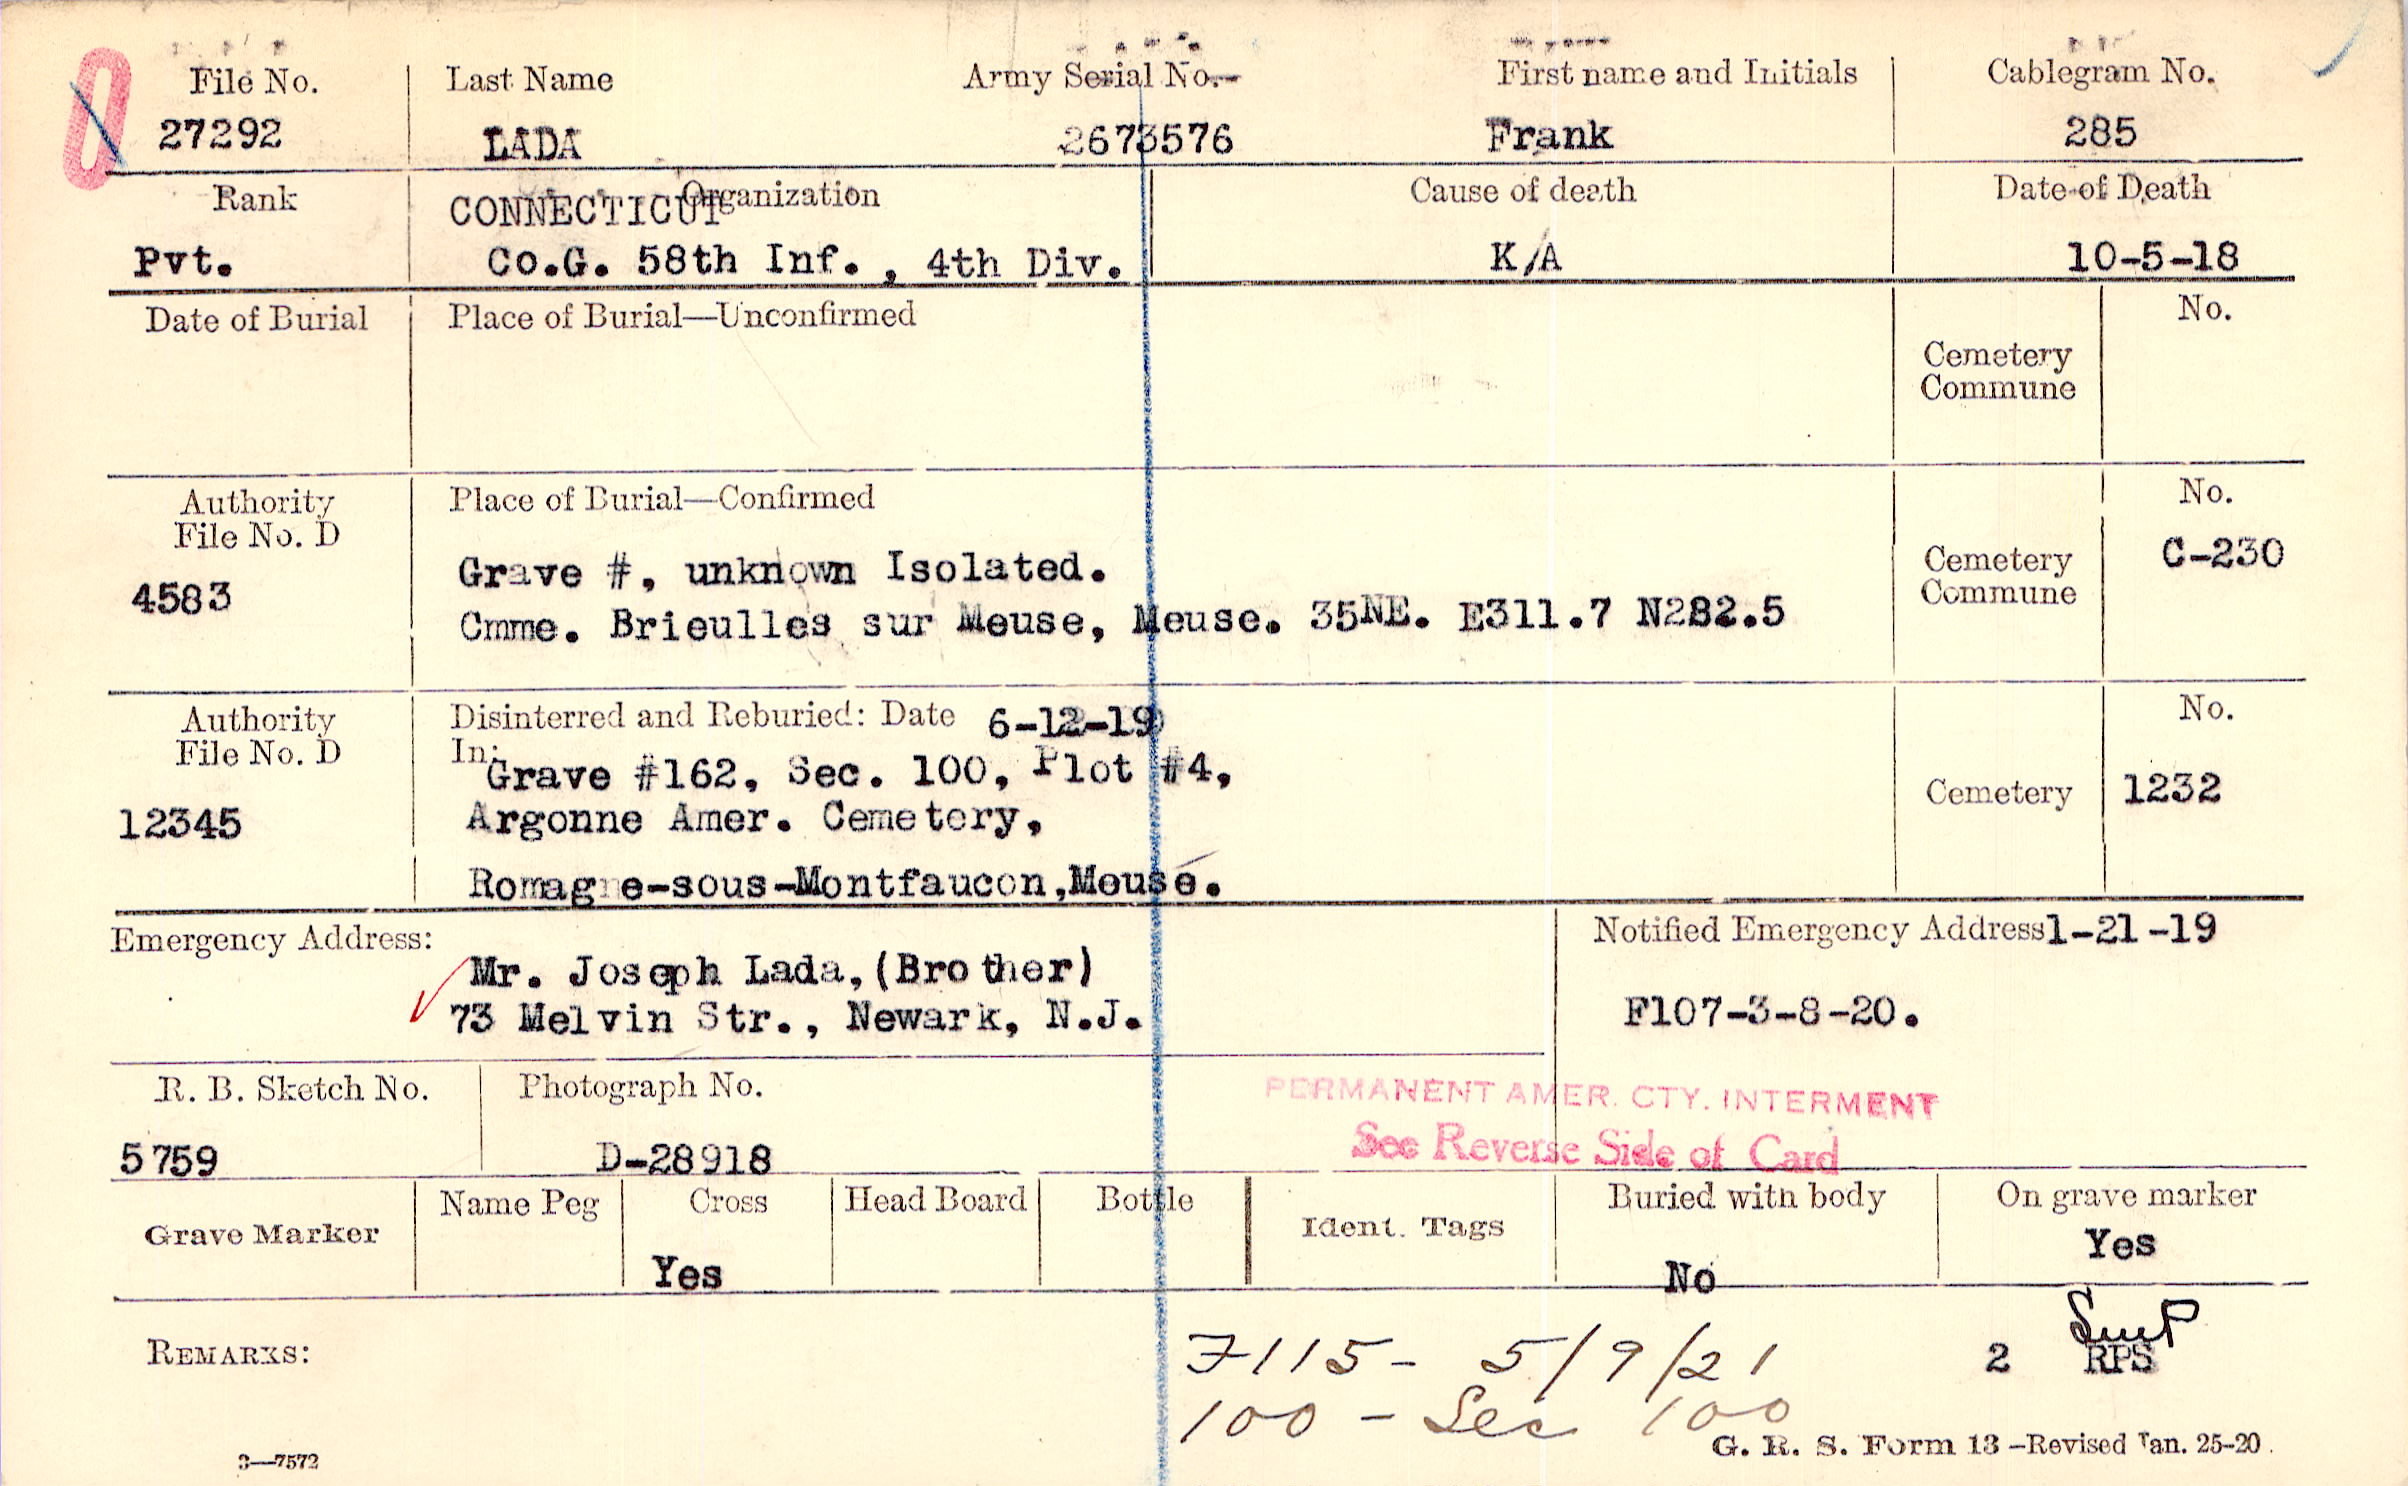 File No. Last Name Army Serial No. First name and Initials Cablegram No.
27292 LADA 2673576 Frank 285
Rank Organization Cause of death Date of Death
CONNECTICUT
Pvt. Co.G. 58th Inf., 4th Div. K/A 10-5-18
Date of Burial Place of Burial—Unconfirmed No.
Cemetery
Commune
Authority Place of Burial—Confirmed No.
File No. D
4583 Grave #, unknown Isolated. Cemetery C-230
Cmme. Brieulles sur Meuse, Meuse. 35NE. E311.7 N282.5 Commune
Authority Disinterred and Reburied: Date 6-12-19 No.
File No. D In: Grave #162, Sec. 100, Plot #4,
12345 Argonne Amer. Cemetery, Cemetery 1232
Romagne-sous-Montfaucon,Meuse.
Emergency Address: Notified Emergency Address 1-21-19
Mr. Joseph Lada, (Brother)
73 Melvin Str., Newark, N.J. F107-3-8-20.
R. B. Sketch No. Photograph No. PERMANENT AMER. CTY. INTERMENT
5759 D-28918 See Reverse Side of Card
Grave Marker Name Peg Cross Head Board Bottle Ident. Tags Buried with body On grave marker
Yes No Yes
REMARKS: F115- 5/9/21 2 RPS
100 - Sec 100
3—7572 G. R. S. Form 13 –Revised Jan. 25-20.